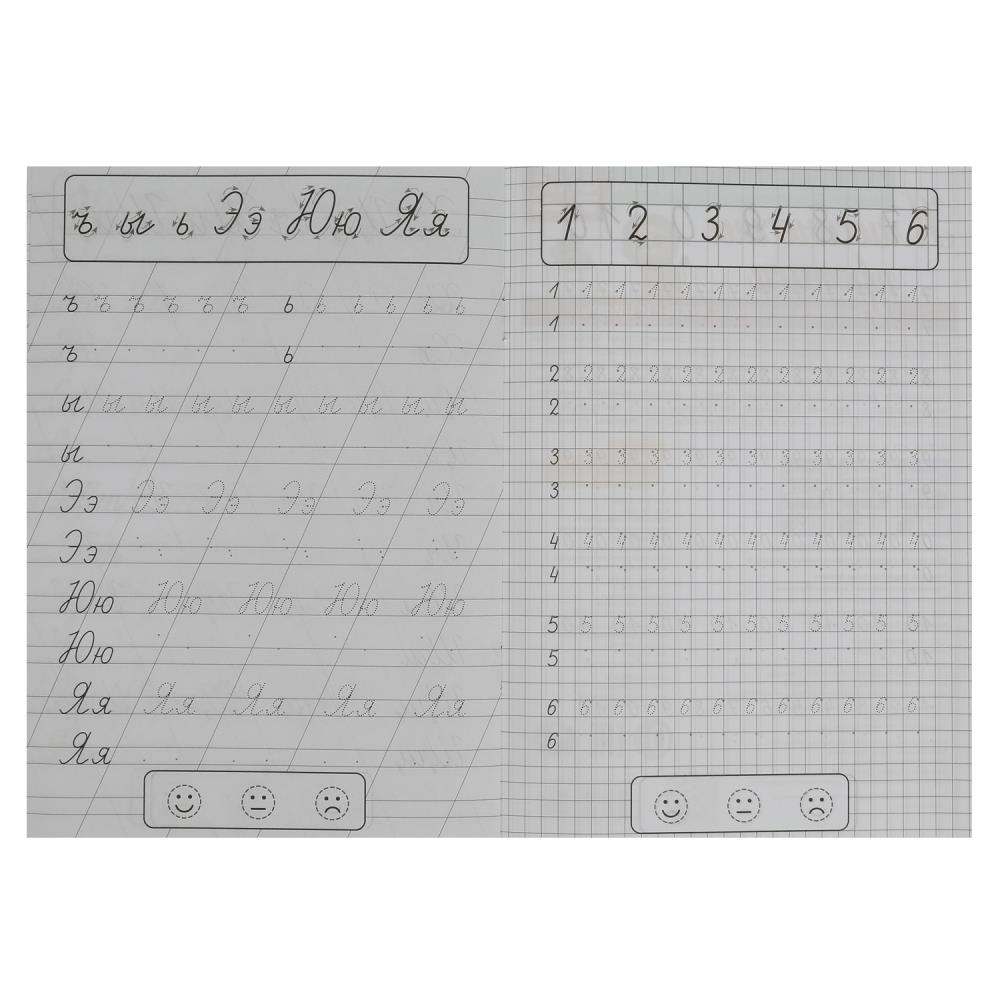 ъ ы ь Ээ Юю Яя
ъ ъ ъ ъ ъ ъ ь ь ь ь ь ь
ъ ь
ы ы ы ы ы ы ы ы ы ы
ы
Ээ Ээ Ээ Ээ Ээ Ээ
Ээ
Юю Юю Юю Юю Юю
Юю
Яя Яя Яя Яя Яя
Яя
1 2 3 4 5 6
1 1 1 1 1 1 1 1 1 1 1 1
1
2 2 2 2 2 2 2 2 2 2 2 2
2
3 3 3 3 3 3 3 3 3 3 3 3
3
4 4 4 4 4 4 4 4 4 4 4 4
4
5 5 5 5 5 5 5 5 5 5 5 5
5
6 6 6 6 6 6 6 6 6 6 6 6
6